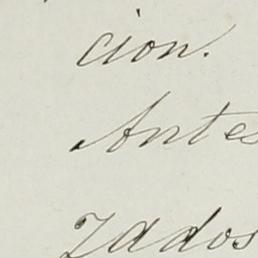 cion.
Antes
zados